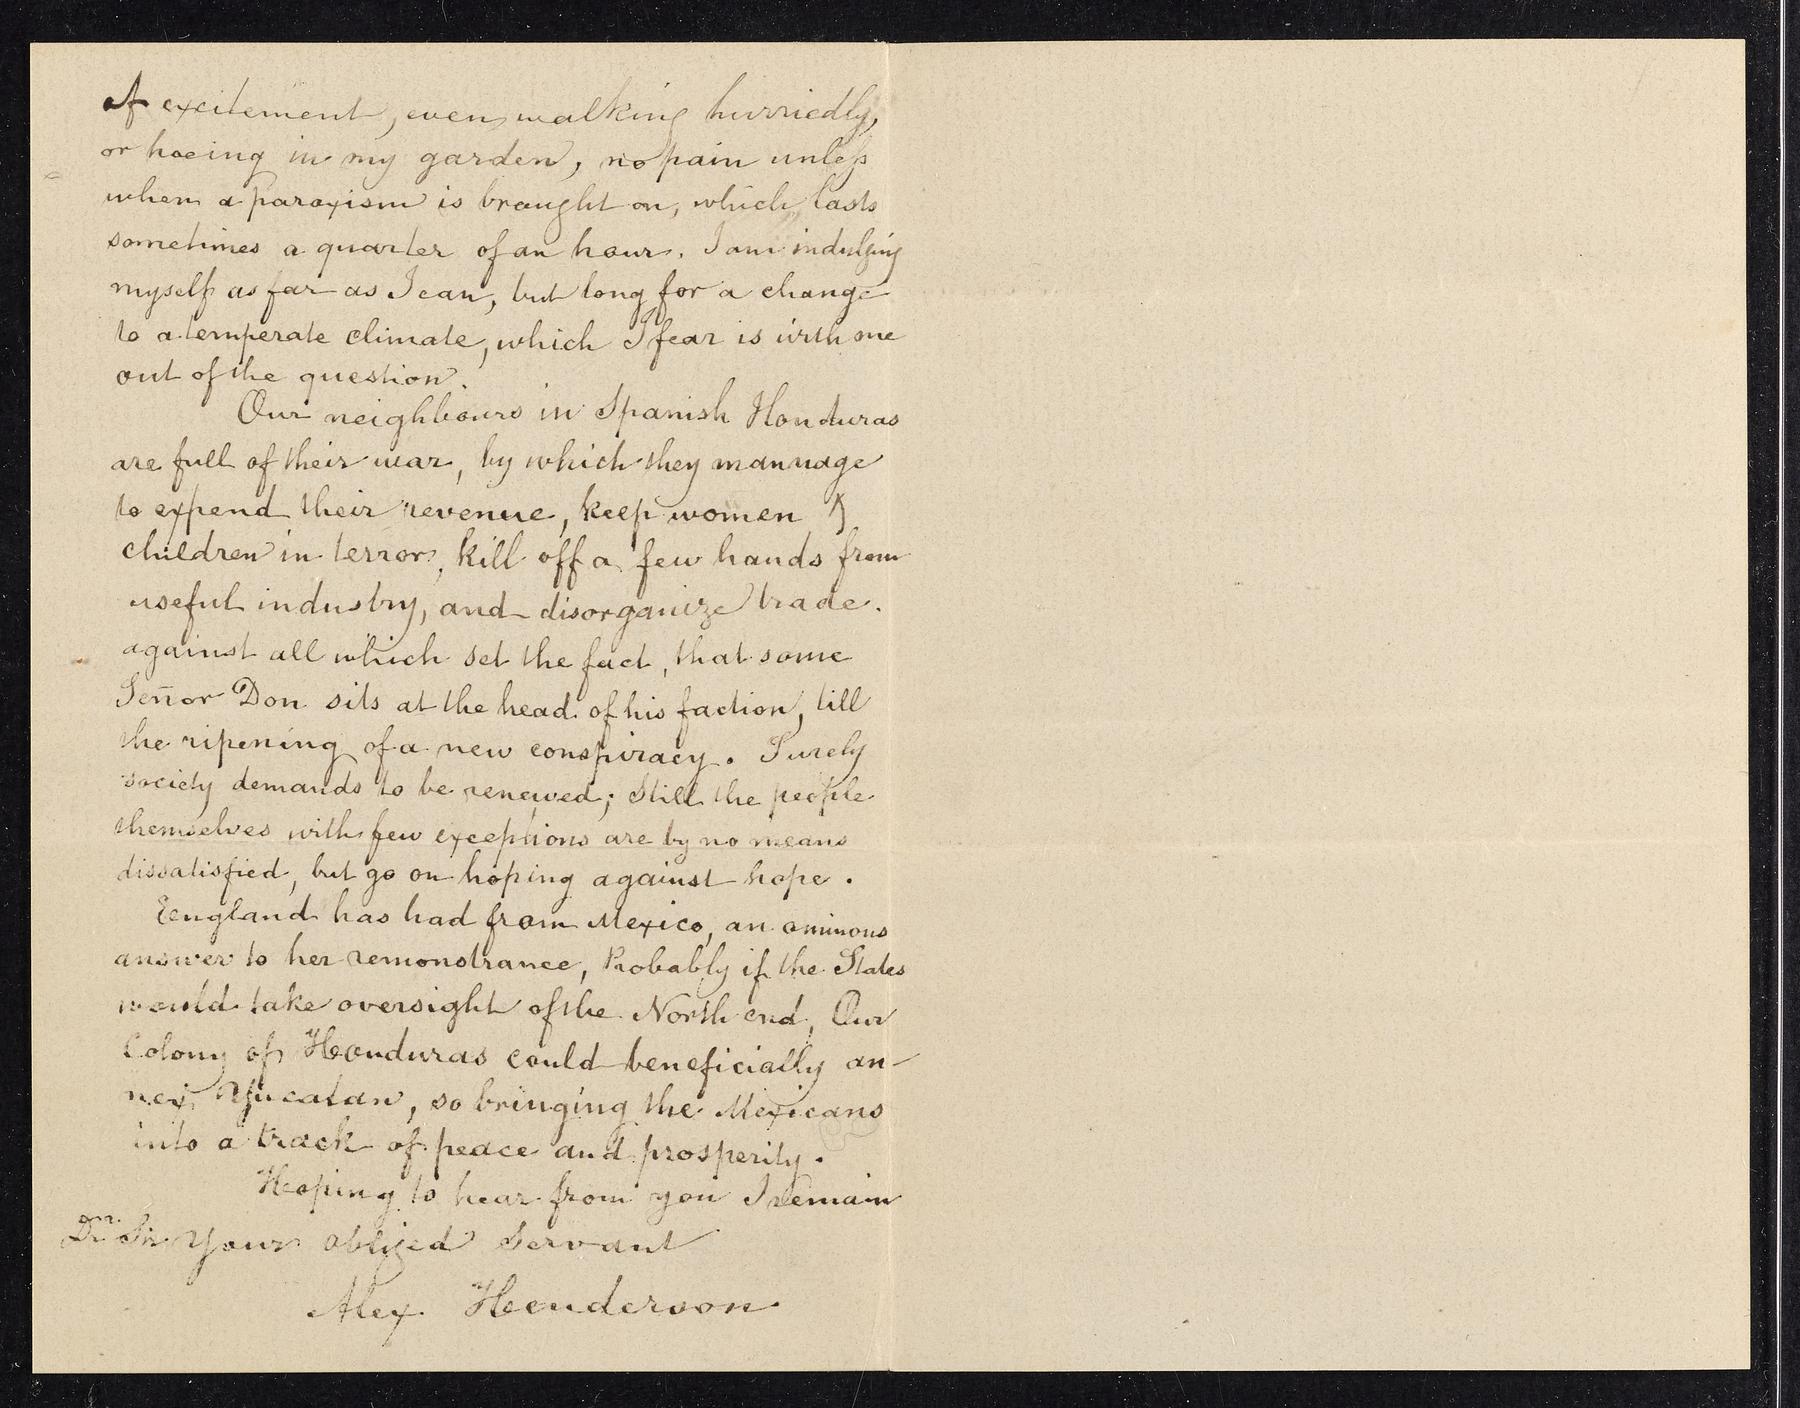 of excitement, even walking hurriedly,
or hoeing in my garden, no pain unless
when a paroxism is brought on, which lasts
sometimes a quarter of an hour. I am indulging
myself as far as I can, but long for a change
to a temperate climate, which I fear is with me
out of the question.
Our neighbours in Spanish Honduras
are full of their war, by which they mannage
to expend their revenue, keep women &
children in terror, kill off a few hands from
useful industry, and disorganize trade.
against all which set the fact, that some
Señor Don sits at the head of his faction, till
the ripening of a new conspiracy. Surely
society demands to be renewed; Still the people
themselves with few exceptions are by no means
dissatisfied, but go on hoping against hope.
Eengland has had from Mexico, an ominous
answer to her remonstrance, Probably if the States
would take oversight of the North end, Our
Colony of Honduras could beneficially an-
nex Yucatan, so bringing the Mexicans
into a track of peace and prosperity.
Hoping to hear from you I remain
Dr. Sir Your obliged Servant
Alex. Henderson